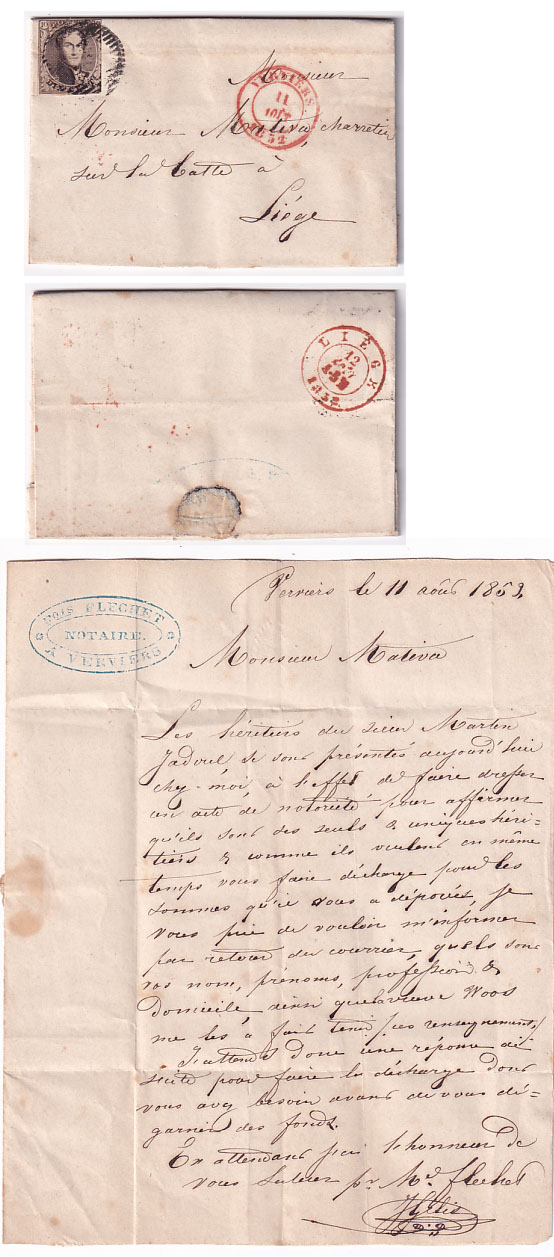 Monsieur
Monsieur Mativa, charretier
sur la Batte à
Liége
VERVIERS
11
AOUT
1852
LIÉGE
12
1852
Verviers le 11 août 1852,
Fois FLECHET
NOTAIRE.
À VERVIERS
Monsieur Mativa
Les héritiers du sieur Martin
Jadoul se sont présentés aujourd'hui
chez-moi, à l'effet de faire dresser
un acte de notoriété pour affirmer
qu'ils sont des seuls & uniques héri-
tiers & comme ils veulent en même
temps vous faire décharge pour les
sommes qu'il vous a déposés, je
vous prie de vouloir m'informer
par retour du courrier, quels sont
vos nom, prénoms, profession &
domicile ainsi que la veuve Woos
me les a fait tenir (ces renseignements)
J'attends donc une réponse de
suite pour faire la décharge dont
vous avez besoin avant de vous dé-
garnir des fonds.
En attendant j'ai l'honneur de
vous saluer pr. Me. Flechet